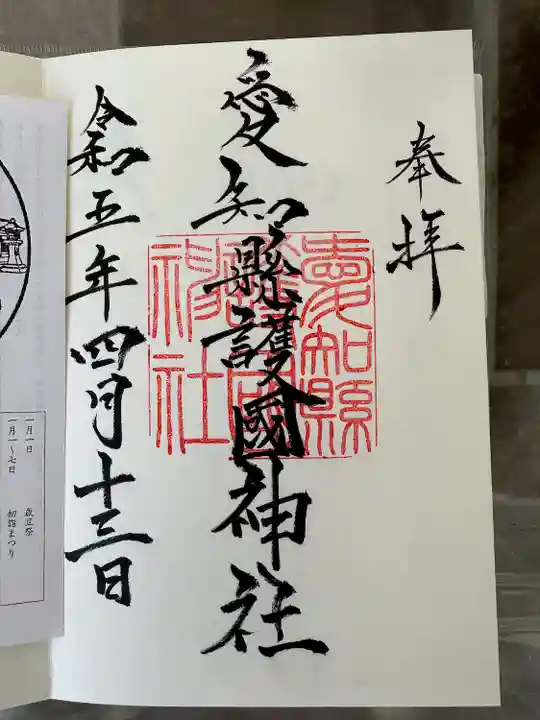 奉拝
愛知縣護國神社
愛知縣
護國
神社
令和五年四月十三日
一月一日 歳旦祭
一月一～七日 初詣まつり